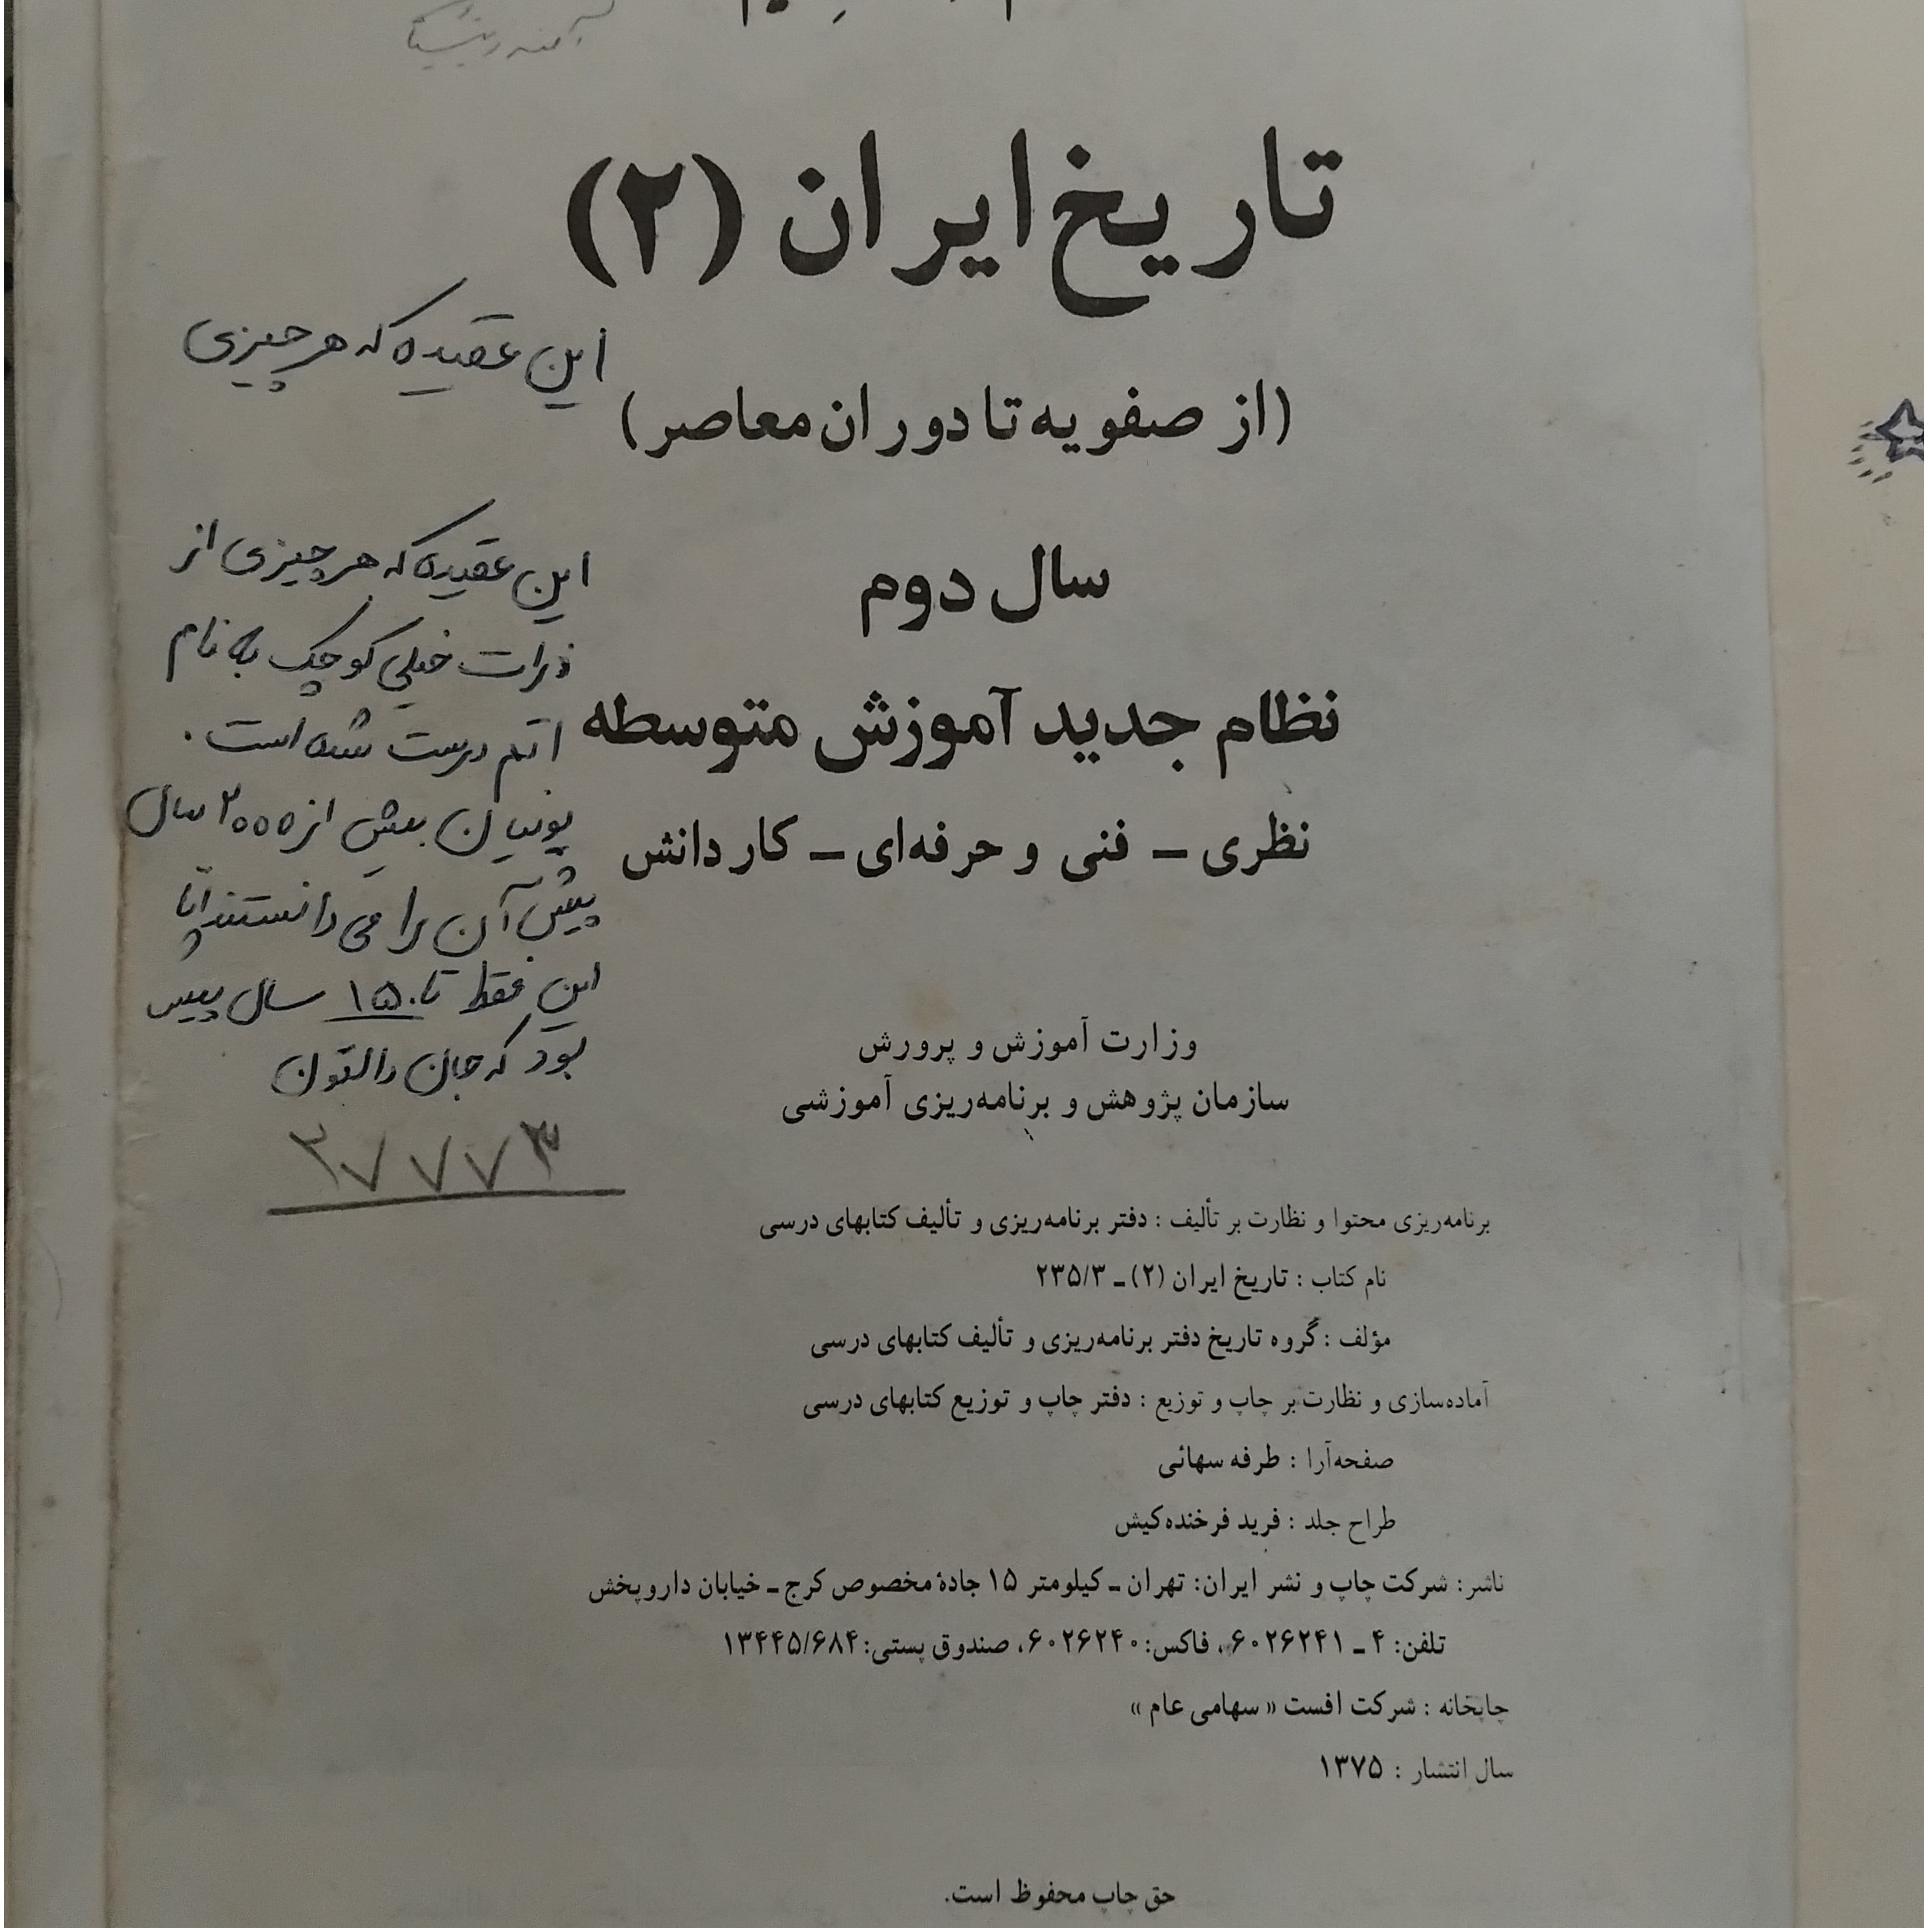 تاریخ ایران (۲)
(از صفویه تا دوران معاصر)
سال دوم
نظام جدید آموزش متوسطه
نظری ـ فنی و حرفه‌ای ـ کار دانش
وزارت آموزش و پرورش
سازمان پژوهش و برنامه‌ریزی آموزشی
برنامه‌ریزی محتوا و نظارت بر تألیف : دفتر برنامه‌ریزی و تألیف کتابهای درسی
نام کتاب : تاریخ ایران (۲) ـ ۲۳۵/۳
مؤلف : گروه تاریخ دفتر برنامه‌ریزی و تألیف کتابهای درسی
آماده‌سازی و نظارت بر چاپ و توزیع : دفتر چاپ و توزیع کتابهای درسی
صفحه‌آرا : طرفه سهائی
طراح جلد : فرید فرخنده‌کیش
ناشر: شرکت چاپ و نشر ایران: تهران ـ کیلومتر ۱۵ جادهٔ مخصوص کرج ـ خیابان داروپخش
تلفن: ۴ ـ ۶۰۲۶۲۴۱، فاکس: ۶۰۲۶۲۴۰، صندوق پستی: ۱۳۴۴۵/۶۸۴
چاپخانه : شرکت افست « سهامی عام »
سال انتشار : ۱۳۷۵
حق چاپ محفوظ است.
این عقیده که هر چیزی
این عقیده که هر چیزی از
ذرات خیلی کوچک به نام
اتم درست شده است.
یونیان بیش از ۲۰۰۰ سال
پیش آن را می دانستند اما
این فقط تا ۱۵۰ سال پیش
بود که جان دالتون
۲۷۷۷۳